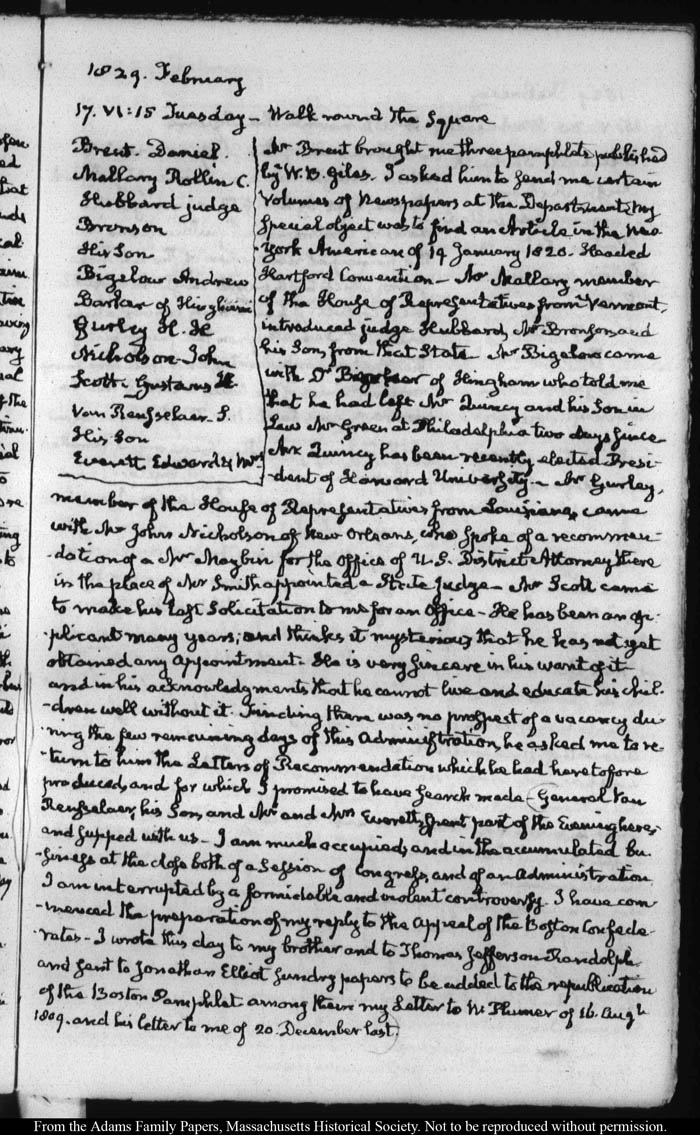 1829. February
17. VI:15 Tuesday – Walk round the Square
Brent. Daniel.
Mallary Rollin C.
Hubbard judge
Bronson
His Son
Bigelow Andrew
Barker of Hingham
Gurley H. H
Nicholson – John
Scott – Gustavus H.
Van Rensselaer – S.
His Son
Everett Edward & Mrs
Mr Brent brought me three pamphlets published
by W. B. Giles. I asked him to send me certain
Volumes of Newspapers at the Department, my
special object was to find an Article in the New-
York American of 19 January 1820. Headed
Hartford Convention – Mr Mallary member
of the House of Representatives from Vermont,
introduced judge Hubbard, Mr Bronson and
his Son, from that State – Mr Bigelow came
with Dr of Hingham who told me
that he had left Mr Quincy and his Son in
Law Mr Green at Philadelphia two days since
Mr Quincy has been recently elected Presi-
-dent of Harvard University – Mr Gurley,
member of the House of Representatives from Louisiana, came
with Mr John Nicholson of New Orleans, who spoke of a recommen-
-dation of a Mr Maybin for the office of U.S. District Attorney there
in the place of Mr Smith appointed a State judge – Mr Scott came
to make his last solicitation to me for an office – He has been an ap-
-plicant many years; and thinks it mysterious that he has not yet
obtained any appointment – He is very sincere in his want of it
and in his acknowledgments that he cannot live and educate his chil-
-dren well without it. Finding there was no prospect of a vacancy du-
-ring the few remaining days of this Administration, he asked me to re-
-turn to him the Letters of Recommendation which he had heretofore
produced, and for which I promised to have search made – General Van
Rensselaer, his Son, and Mr and Mrs Everett, spent part of the Evening here,
and supped with us – I am much occupied, and in the accumulated bu-
-siness at the close both of a Session of Congress, and of an Administration
I am interrupted by a formidable and violent controversy. I have com-
-menced the preparation of my reply to the Appeal of the Boston Confede-
-rates – I wrote this day to my brother and to Thomas Jefferson Randolph
and sent to Jonathan Elliot sundry papers to be added to the republication
of the Boston Pamphlet among them my Letter to W. Plumer of 16. Augt
1809. and his letter to me of 20. December last.
From the Adams Family Papers, Massachusetts Historical Society. Not to be reproduced without permission.